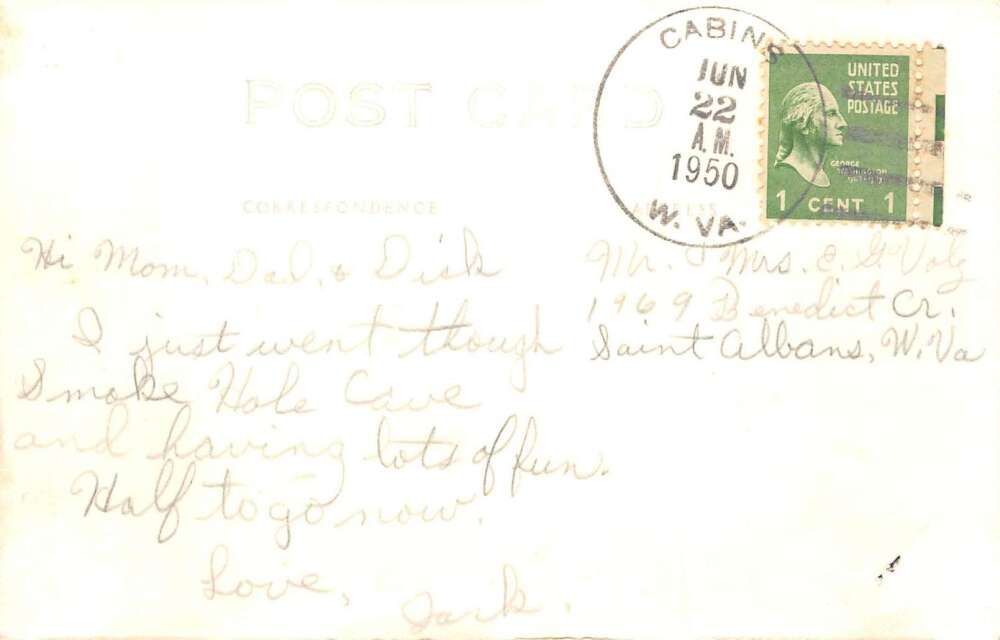 POST CARD
CABINS
JUN
22
A.M.
1950
W. VA.
UNITED
STATES
POSTAGE
GEORGE
WASHINGTON
1 CENT 1
CORRESPONDENCE
ADDRESS
Hi Mom, Dad, & Dick
I just went though
Smoke Hole Cave
and having lots of fun.
Half to go now.
Love,
Jack.
Mr. & Mrs. E. G. Volz
1969 Benedict Cr.
Saint Albans, W. Va